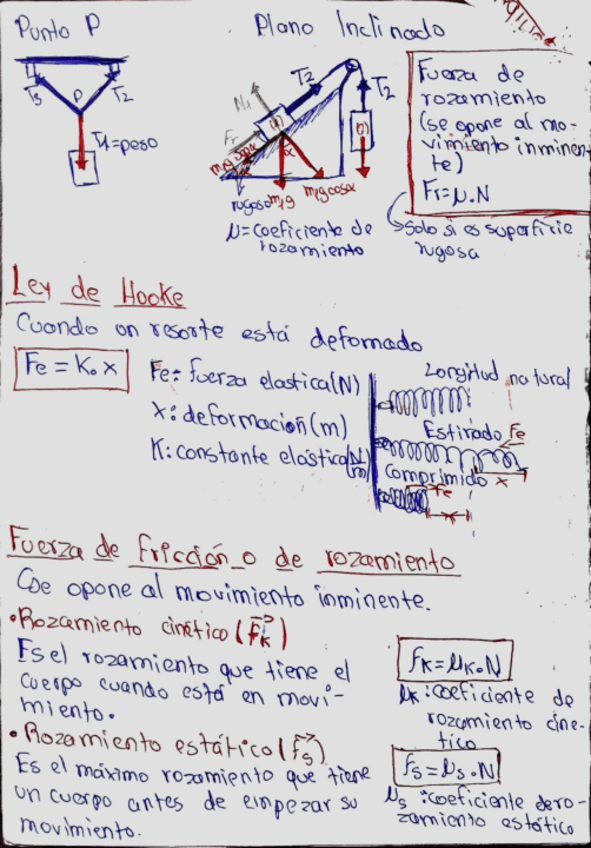 Punto P
T3
P
T2
T1=peso
Plano Inclinado
N1
T2
T2
Fr
(1)
(2)
α
m1g
m1g cosα
rugoso
μ=coeficiente de
rozamiento
Fuerza de
rozamiento
(se opone al mo-
vimiento inminen-
te)
Fr=μ.N
Solo si es superficie
rugosa
Ley de Hooke
Cuando un resorte está deformado
Fe = K. x
Fe: fuerza elastica(N)
x: deformación(m)
K: constante elástica(N/m)
Longitud natural
Estirado Fe
Comprimido x
Fe
x
Fuerza de fricción o de rozamiento
Se opone al movimiento inminente.
•Rozamiento cinético (fK)
Es el rozamiento que tiene el
cuerpo cuando está en movi-
miento.
fK=μK.N
μK:coeficiente de
rozamiento cine-
tico
• Rozamiento estático (fs)
Es el máximo rozamiento que tiene
un cuerpo antes de empezar su
movimiento.
fs=μs.N
μs:coeficiente de ro-
zamiento estático